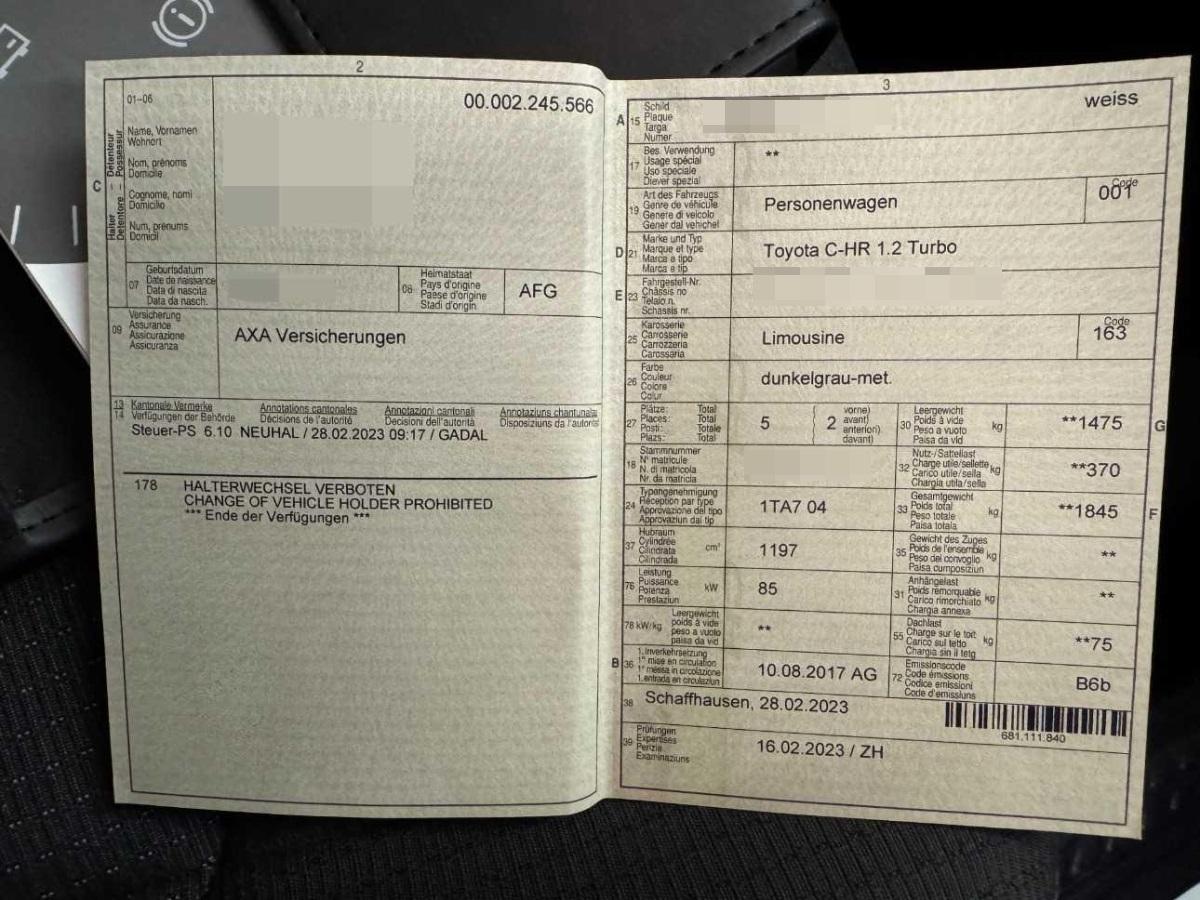 2
01-06
00.002.245.566
C
Halter – Détenteur
Detentore – Possessur
Name, Vornamen
Wohnort
Nom, prénoms
Domicile
Cognome, nomi
Domicilio
Num, prenums
Domicil
07
Geburtsdatum
Date de naissance
Data di nascita
Data da nasch.
08
Heimatstaat
Pays d'origine
Paese d'origine
Stadi d'origin
AFG
09
Versicherung
Assurance
Assicurazione
Assicuranza
AXA Versicherungen
13
14
Kantonale Vermerke
Verfügungen der Behörde
Annotations cantonales
Décisions de l'autorité
Annotazioni cantonali
Decisioni dell'autorità
Annotaziuns chantunala
Disposiziuns da l'autorit
Steuer-PS 6.10 NEUHAL / 28.02.2023 09:17 / GADAL
178 HALTERWECHSEL VERBOTEN
CHANGE OF VEHICLE HOLDER PROHIBITED
*** Ende der Verfügungen ***
3
A 15
Schild
Plaque
Targa
Numer
weiss
17
Bes. Verwendung
Usage spécial
Uso speciale
Diever spezial
**
19
Art des Fahrzeugs
Genre de véhicule
Genere di veicolo
Gener dal vehichel
Personenwagen
Code
001
D 21
Marke und Typ
Marque et type
Marca e tipo
Marca e tip
Toyota C-HR 1.2 Turbo
E 23
Fahrgestell-Nr.
Châssis no
Telaio n.
Schassis nr.
25
Karosserie
Carrosserie
Carrozzeria
Carossaria
Limousine
Code
163
26
Farbe
Couleur
Colore
Colur
dunkelgrau-met.
27
Plätze: Total
Places: Total
Posti: Totale
Plazs: Total
5
2
vorne)
avant)
anteriori)
davant)
30
Leergewicht
Poids à vide
Peso a vuoto
Paisa da vid
kg
**1475
G
18
Stammnummer
N° matricule
N. di matricola
Nr. da matricla
32
Nutz-/Sattellast
Charge utile/sellette
Carico utile/sella
Chargia utila/sella
kg
**370
24
Typengenehmigung
Réception par type
Approvazione del tipo
Approvaziun dal tip
1TA7 04
33
Gesamtgewicht
Poids total
Peso totale
Paisa totala
kg
**1845
F
37
Hubraum
Cylindrée
Cilindrata
Cilindrada
cm³
1197
35
Gewicht des Zuges
Poids de l'ensemble
Peso del convoglio
Paisa cumposiziun
kg
**
76
Leistung
Puissance
Potenza
Prestaziun
kW
85
31
Anhängelast
Poids remorquable
Carico rimorchiato
Chargia annexa
kg
**
78 kW/kg
Leergewicht
poids à vide
peso a vuoto
paisa da vid
**
55
Dachlast
Charge sur le toit
Carico sul tetto
Chargia sin il tetg
kg
**75
B 36
1.Inverkehrsetzung
1re mise en circulation
1a messa in circolazione
1.entrada en circulaziun
10.08.2017 AG
72
Emissionscode
Code émissions
Codice emissioni
Code d'emissiuns
B6b
38
Schaffhausen, 28.02.2023
681.111.840
39
Prüfungen
Expertises
Perizie
Examinaziuns
16.02.2023 / ZH